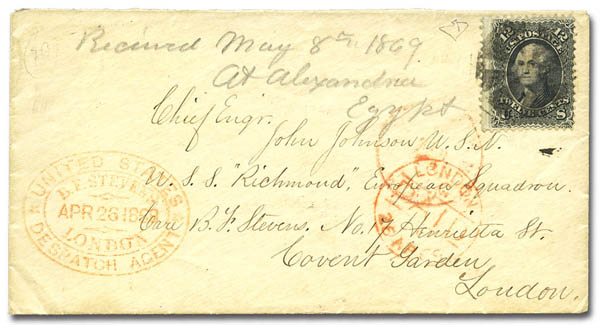 Received May 8th 1869
At Alexandria
Egypt
12 12
U.S. POSTAGE
TWELVE CENTS
U S
Chief Engr.
John Johnson U.S.N.
U.S.S. "Richmond", European Squadron.
Care B.F. Stevens. No. 17 Henrietta St.
Covent Garden,
London.
UNITED STATES
B.F. STEVENS
APR 26 1869
LONDON
DESPATCH AGENT
LONDON